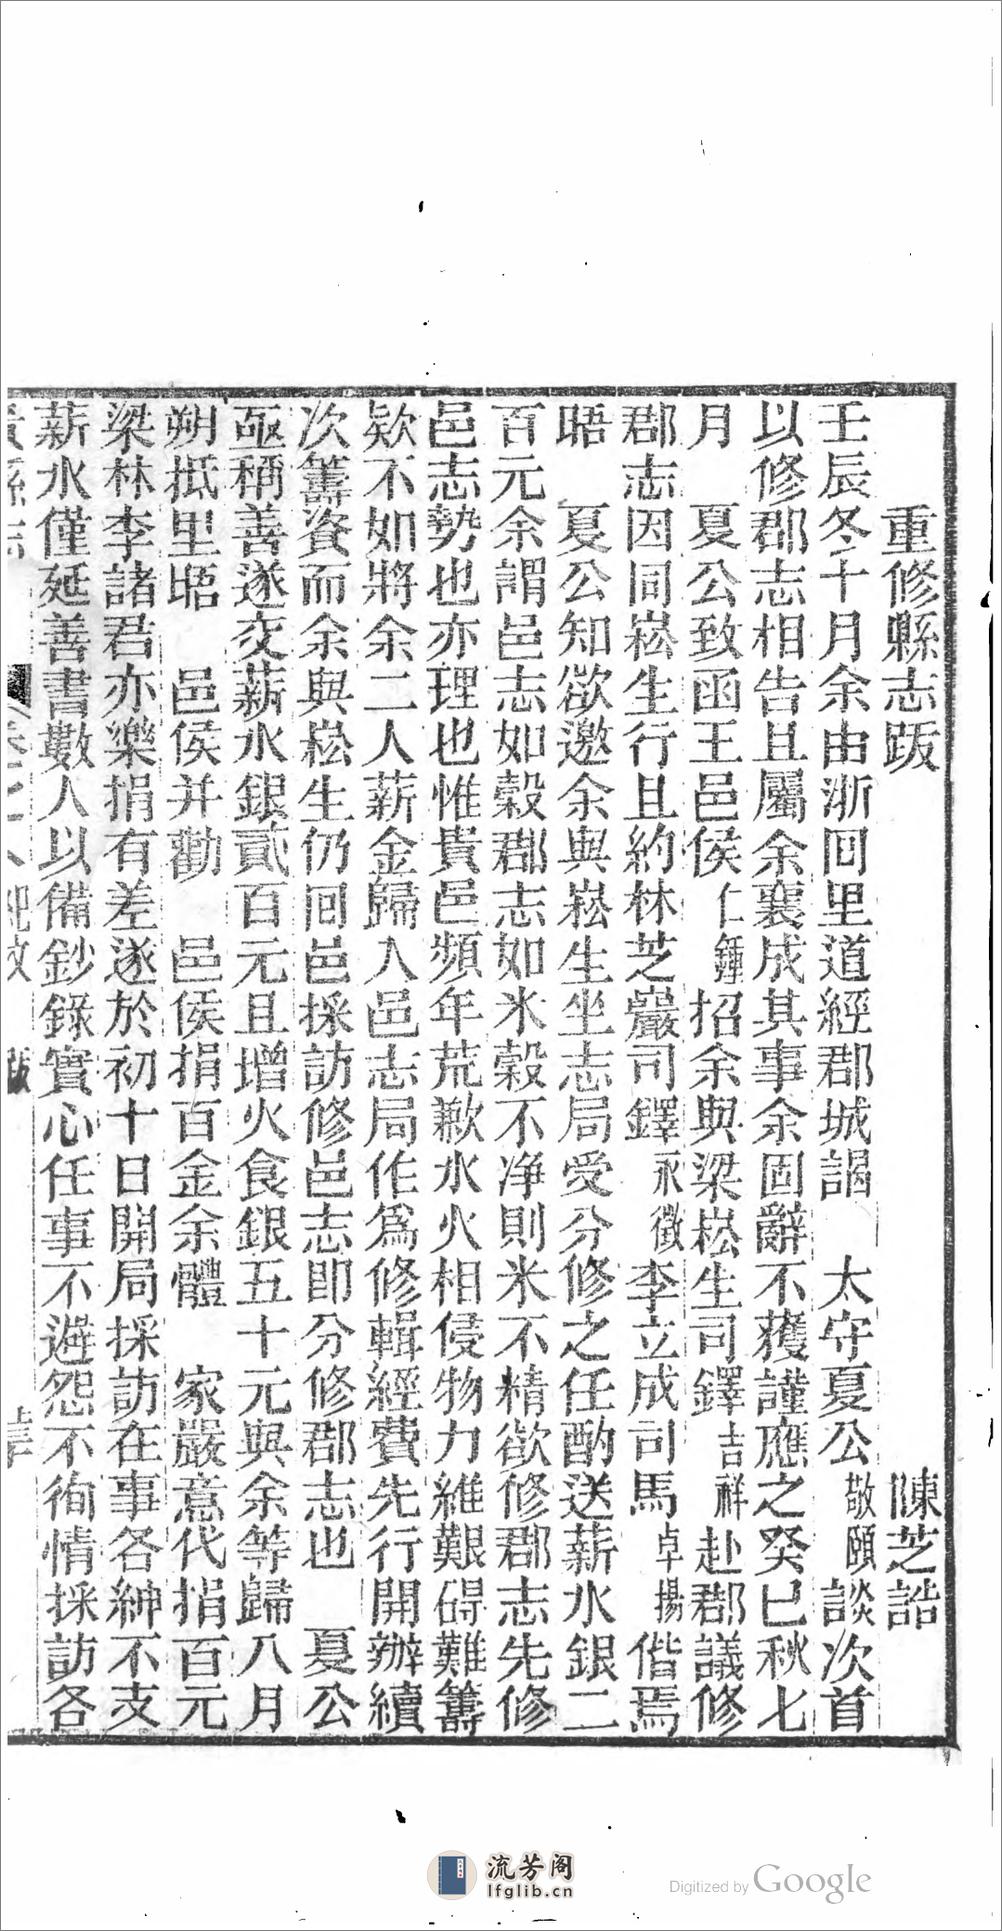 重修縣志跋 陳芝誥
壬辰冬十月余由浙回里道經郡城謁 太守夏公敬頤談次首
以修郡志相告且屬余襄成其事余固辭不獲謹應之癸巳秋七
月 夏公致函王邑侯仁鍾招余與梁崧生司鐸吉祥赴郡議修
郡志因同崧生行且約林芝巖司鐸永徵李立成司馬卓揚偕焉
晤 夏公知欲邀余與崧生坐志局受分修之任酌送薪水銀二
百元余謂邑志如穀郡志如米穀不净則米不精欲修郡志先修
邑志勢也亦理也惟貴邑頻年荒歉水火相侵物力維艱碍難籌
欵不如將余二人薪金歸入邑志局作爲修輯經費先行開辦續
次籌資而余與崧生仍回邑採訪修邑志即分修郡志也 夏公
亟稱善遂交薪水銀貳百元且增火食銀五十元與余等歸八月
朔抵里晤 邑侯并勸 邑侯捐百金余體 家嚴意代捐百元
梁林李諸君亦樂捐有差遂於初十日開局採訪在事各紳不支
薪水僅延善書數人以備鈔錄實心任事不避怨不徇情採訪各
貴縣志 卷之八 紀敘 跋
流芳阁
lfglib.cn
Digitized by Google